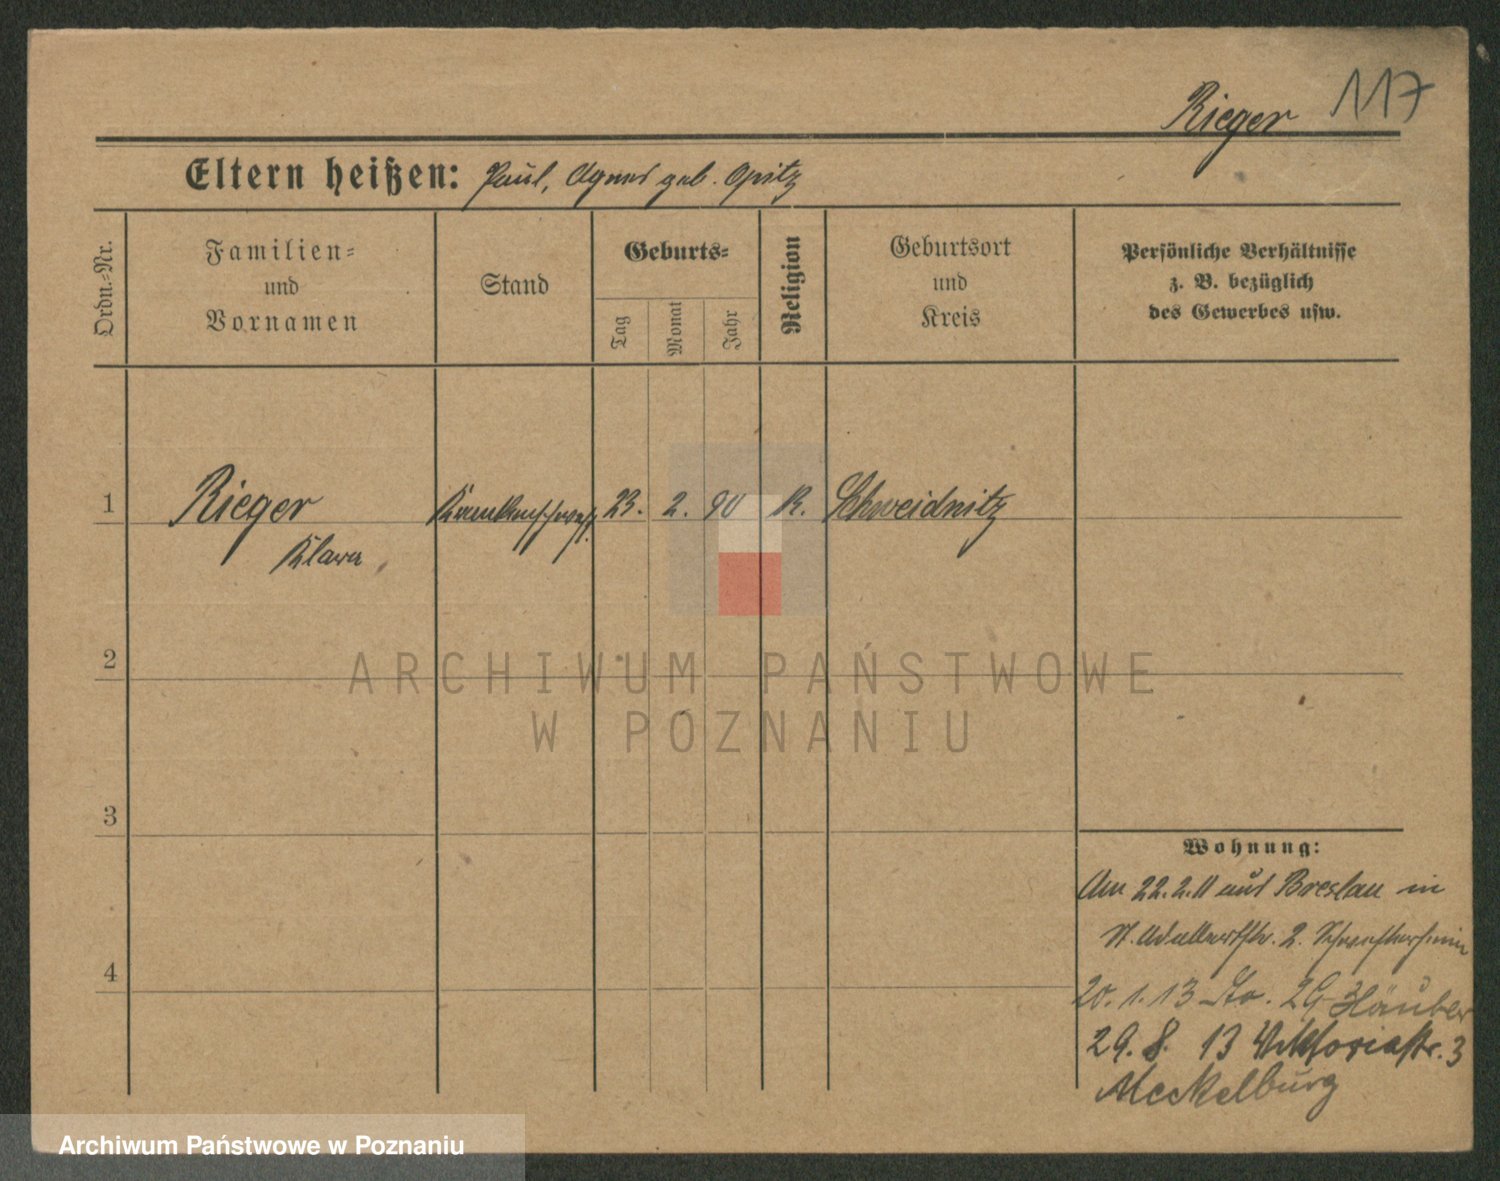 Rieger 117
Eltern heißen: Paul, Agnes geb. Opitz
Ordn.-Nr.
Familien-
und
Vornamen
Stand
Geburts-
Tag
Monat
Jahr
Religion
Geburtsort
und
Kreis
Persönliche Verhältnisse
z. B. bezüglich
des Gewerbes usw.
1 Rieger Krankenschwest. 23. 2. 90 K. Schweidnitz
Klara
2
ARCHIWUM PAŃSTWOWE
W POZNANIU
3
Wohnung:
Am 22.2.11 aus Breslau in
St. Adalbertstr. 2. Schwesternheim
4
20. 1. 13 29 Häuber
29. 8. 13 Viktoriastr. 3
Meckelburg
Archiwum Państwowe w Poznaniu